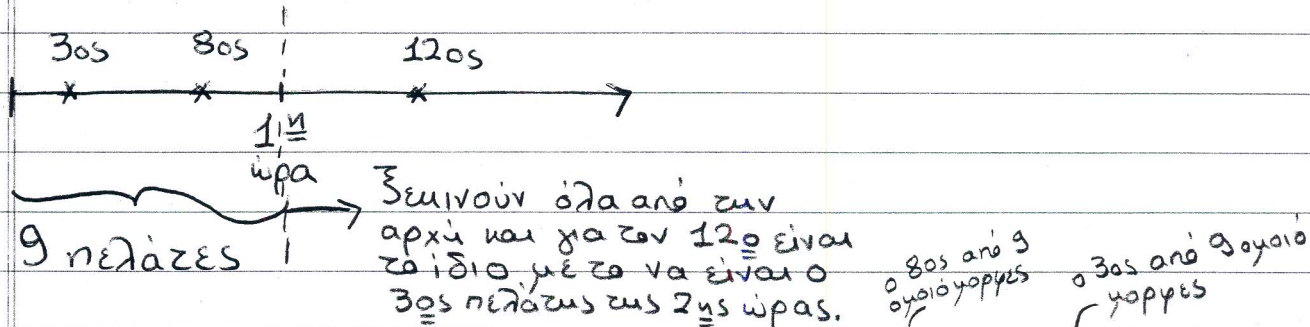 3ος 8ος 12ος
1η
ώρα
9 πελάτες
Ξεκινούν όλα από την
αρχή και για τον 12ο είναι
το ίδιο με το να είναι ο
3ος πελάτης της 2ης ώρας.
ο 8ος από 9
ομοιόμορφες
ο 3ος από 9 ομοιό
μορφες